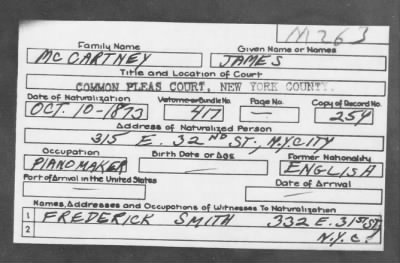 M263
Family Name Given Name or Names
McCARTNEY JAMES
Title and Location of Court
COMMON PLEAS COURT, NEW YORK COUNTY.
Date of Naturalization Volume or Bundle No. Page No. Copy of Record No.
OCT. 10-1873 417 — 254
Address of Naturalized Person
315 E. 32ND ST., N.Y.CITY
Occupation Birth Date or Age Former Nationality
PIANOMAKER ENGLISH
Port of Arrival in the United States Date of Arrival
Names, Addresses and Occupations of Witnesses To Naturalization
1 FREDERICK SMITH 332 E. 31ST ST.
2 N.Y.C.